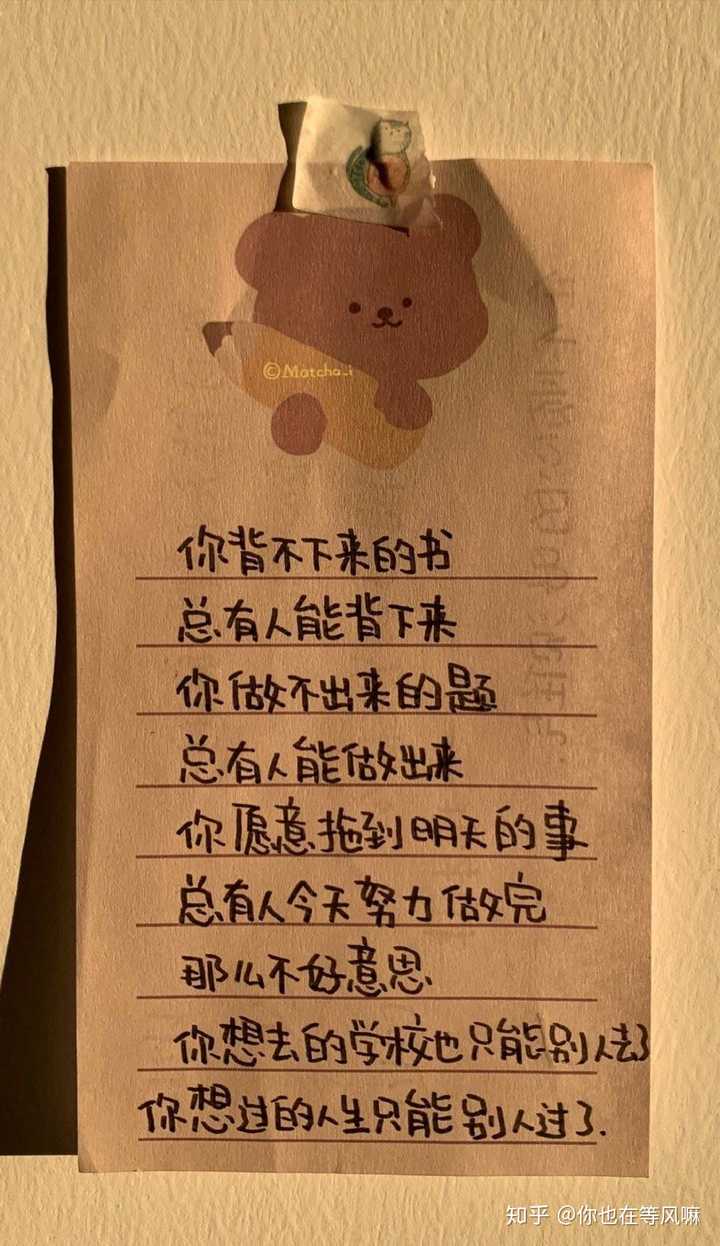 ©Matcha_i
你背不下来的书
总有人能背下来
你做不出来的题
总有人能做出来
你愿意拖到明天的事
总有人今天努力做完
那么不好意思
你想去的学校也只能别人去了
你想过的人生只能别人过了.
知乎 @你也在等风嘛